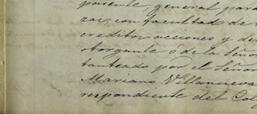 poniente, general para
zar, con facultad de
creditos acciones y de
otorgante ó de la Seño
tanteado por el Señor
Mariano Villanueva
respondiente del Col